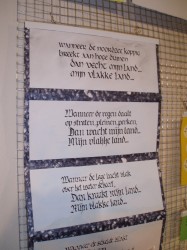 wanneer de noordzee koppig
breekt aan hoge duinen
dan vecht mijn land...
mijn vlakke land...
Wanneer de regen daalt
op straten, pleinen, perken,
Dan wacht mijn land...
Mijn vlakke land...
Wanneer de lage lucht vlak
over het water scheert
Dan kraakt mijn land...
Mijn vlakke land...